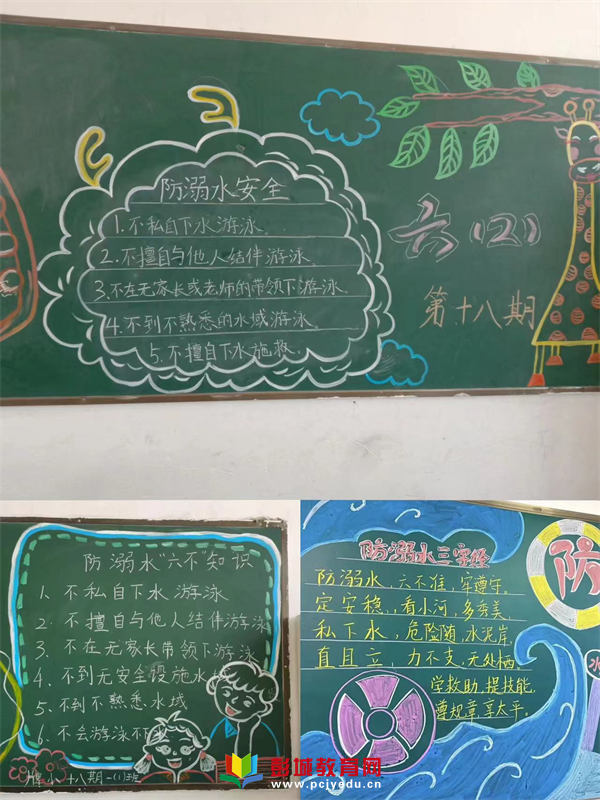 防溺水安全
1.不私自下水游泳。
2.不擅自与他人结伴游泳。
3.不在无家长或老师的带领下游泳。
4.不到不熟悉的水域游泳。
5.不擅自下水施救。
六(2)
第十八期
防溺水“六不”知识
1、不私自下水游泳
2、不擅自与他人结伴游泳
3、不在无家长带领下游泳
4、不到无安全设施水
5、不到不熟悉水域
6、不会游泳不下
小十八期一(1)班
防溺水三字经
防溺水,六不准,牢遵守。
定安稳,,看小河,多秀美
私下水,危险随,水泥岸,
直且立,力不支,无处栖。
学救助,提技能,
遵规章,享太平。
防
水
彭城教育网
www.pcjyedu.cn